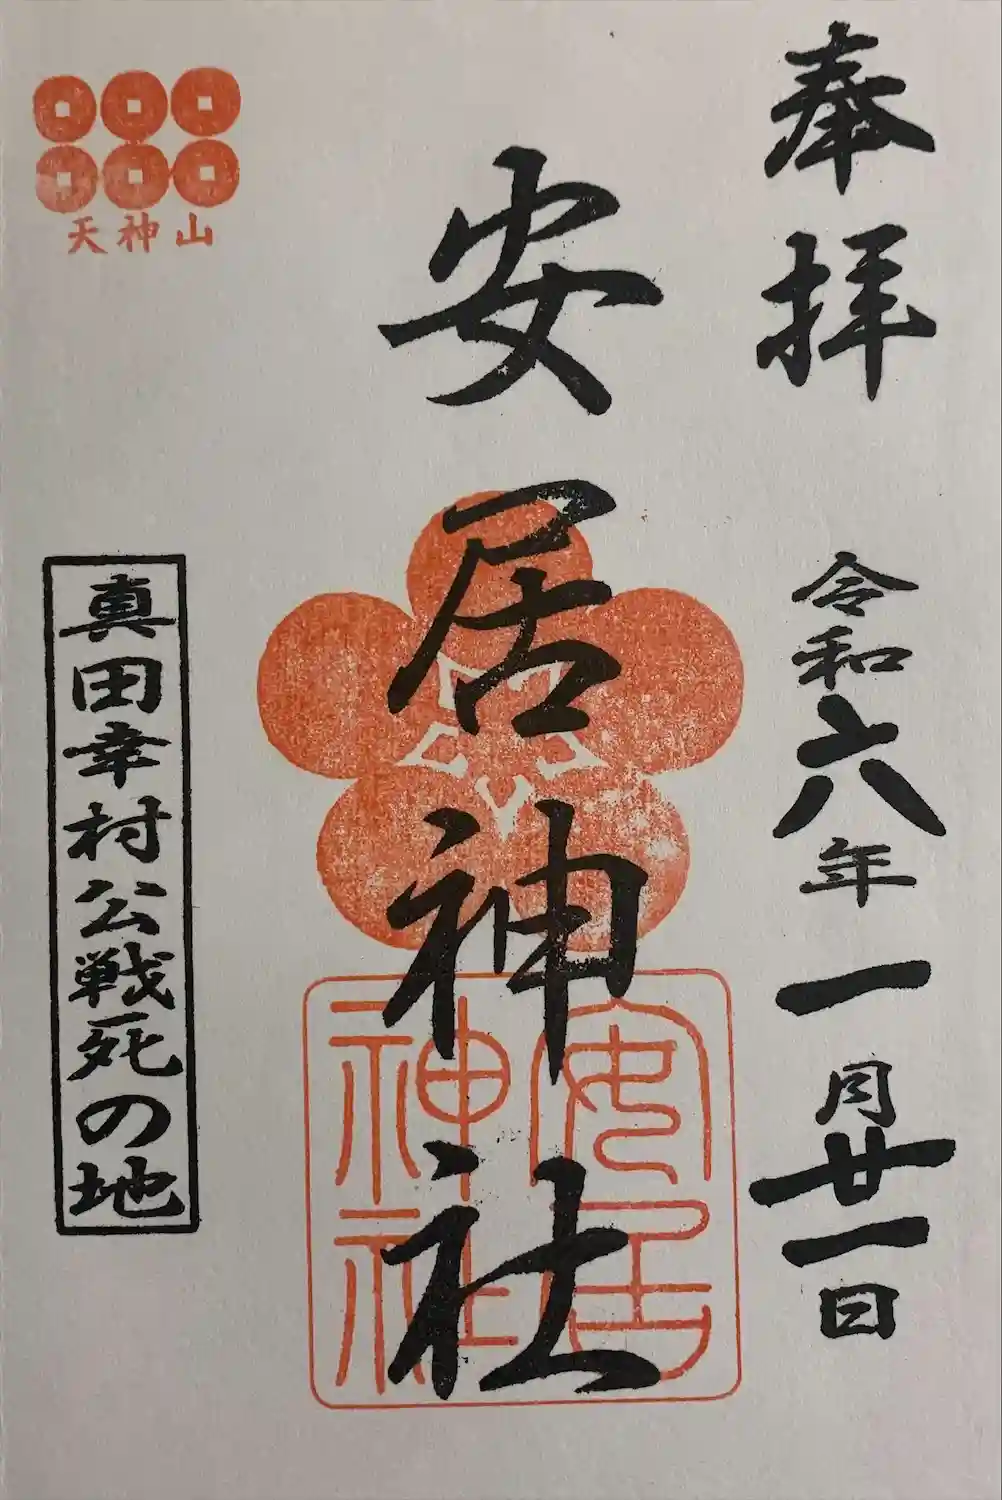 奉拝
令和六年一月廿一日
安居神社
安居
神社
天神山
真田幸村公戦死の地